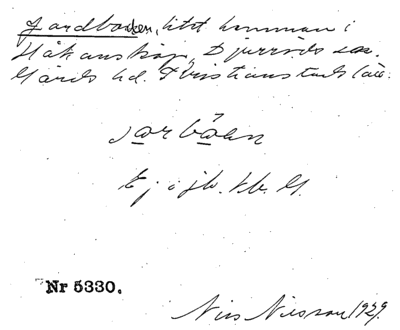 Jordbacken, litet hemman i
Håkansköp, Djurröds sn.
Gärds hd. Kristianstads län.
jorbåen
Ej i jb. kb. G.
Nr 5330.
Nils Nilsson 1929.